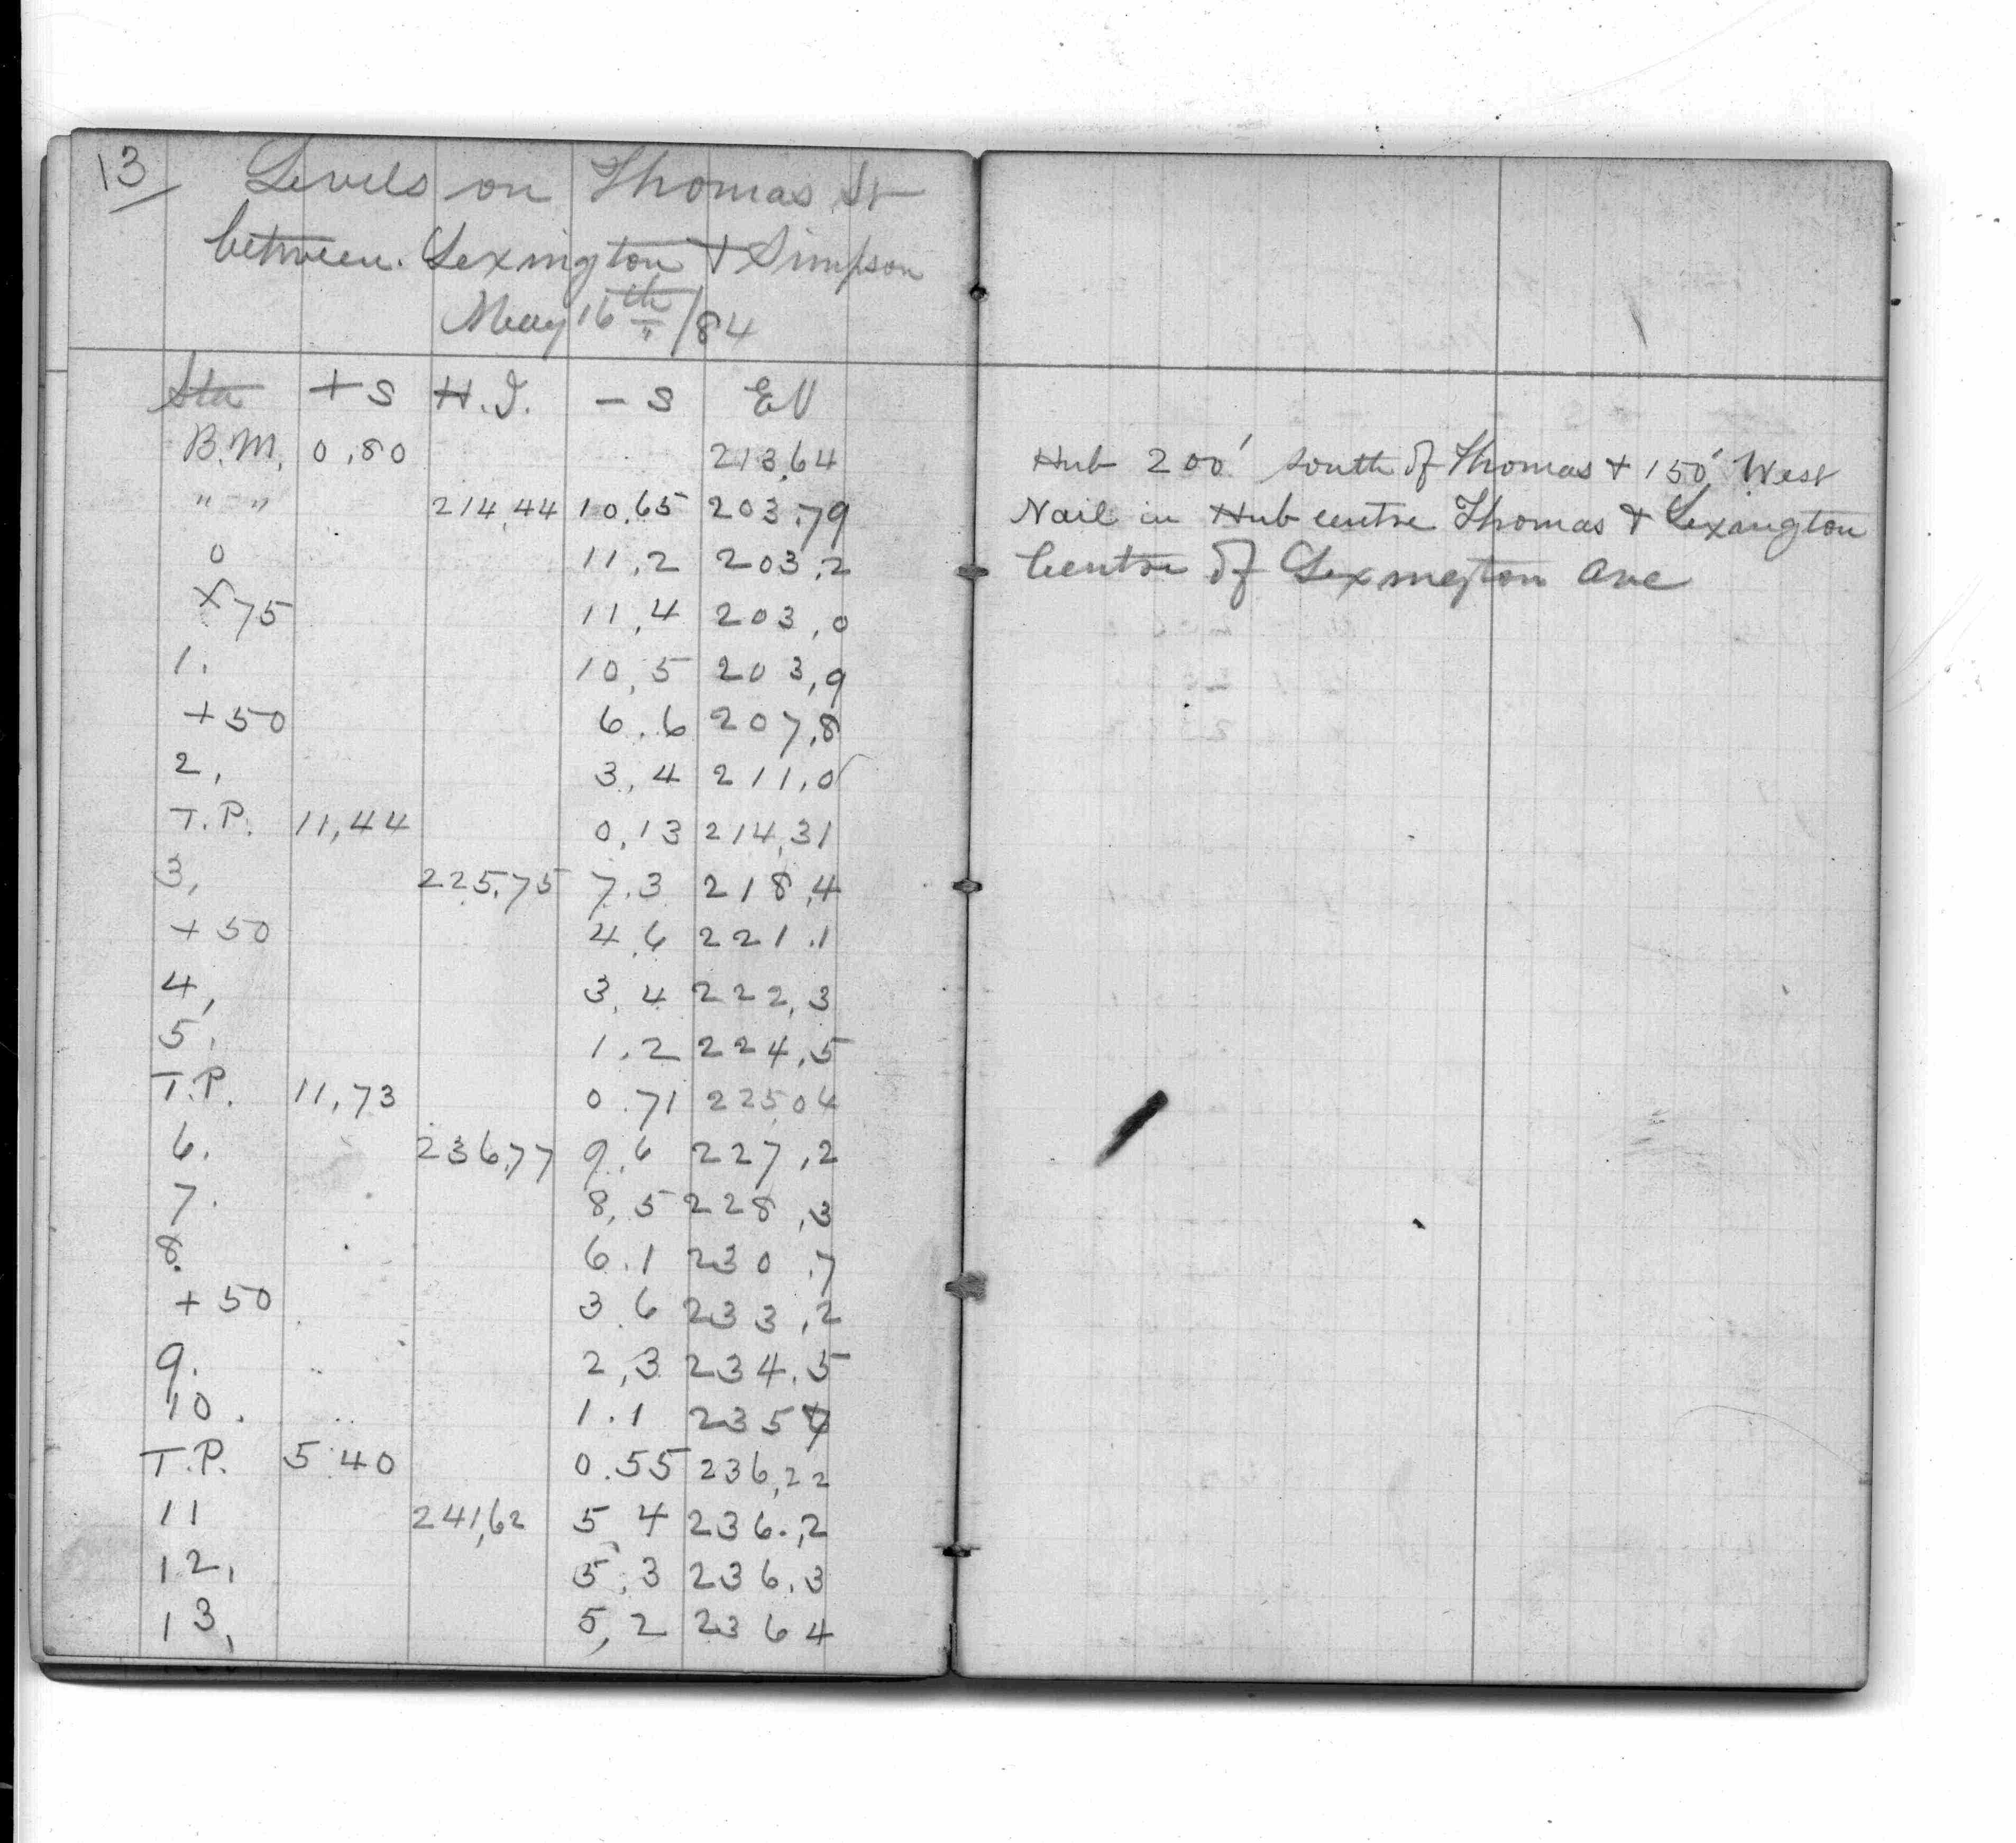 13
Levels on Thomas St
between Lexington & Simpson
May 16th /84
Sta + S H.I. - S El
B.M. 0.80 213.64 Hub 200' south of Thomas & 150' West
" " 214.44 10.65 203.79 Nail in Hub centre Thomas & Lexington
0 11.2 203.2 Centre of Lexington Ave
+75 11.4 203.0
1. 10.5 203.9
+50 6.6 207.8
2. 3.4 211.0
T.P. 11.44 0.13 214.31
3. 225.75 7.3 218.4
+50 4.6 221.1
4. 3.4 222.3
5. 1.2 224.5
T.P. 11.73 0.71 225.04
6. 236.77 9.6 227.2
7. 8.5 228.3
8. 6.1 230.7
+50 3.6 233.2
9. 2.3 234.5
10. 1.1 235 7
T.P. 5.40 0.55 236.22
11 241.62 5.4 236.2
12. 5.3 236.3
13. 5.2 236 4